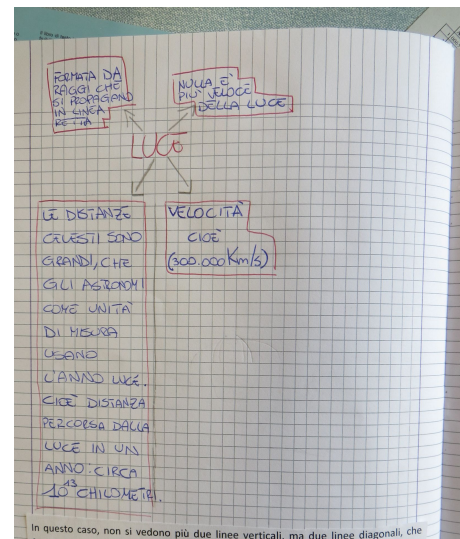 FORMATA DA
RAGGI CHE
SI PROPAGANO
IN LINEA
RETTA
NULLA È
PIÙ VELOCE
DELLA LUCE
LUCE
LE DISTANZE
CELESTI SONO
GRANDI, CHE
GLI ASTRONOMI
COME UNITÀ
DI MISURA
USANO
L'ANNO LUCE.
CIOÈ DISTANZA
PERCORSA DALLA
LUCE IN UN
ANNO: CIRCA
10¹³ CHILOMETRI.
VELOCITÀ
CIOÈ
(300.000 Km/s)
In questo caso, non si vedono più due linee verticali, ma due linee diagonali, che